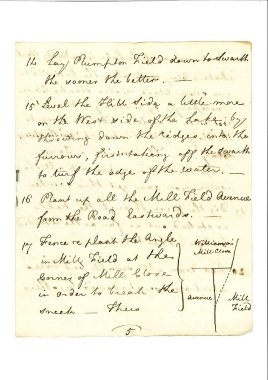 14 Lay Plumpton Field down to Swarth
the sooner the better. —
15 Level the Hill Side a little more
on the West side of the Lake, by
throwing down the ridges into the
furrows, first taking off the Swarth
to turf the edge of the water. —
16 Plant up all the Mill Field Avenue
from the Road Eastwards. —
17 Fence & plant the Angle
in Mill Field at the
Corner of Mill Close
in order to break the
— Thus
Williamson's
Mill Close
Avenue
Mill
Field
5